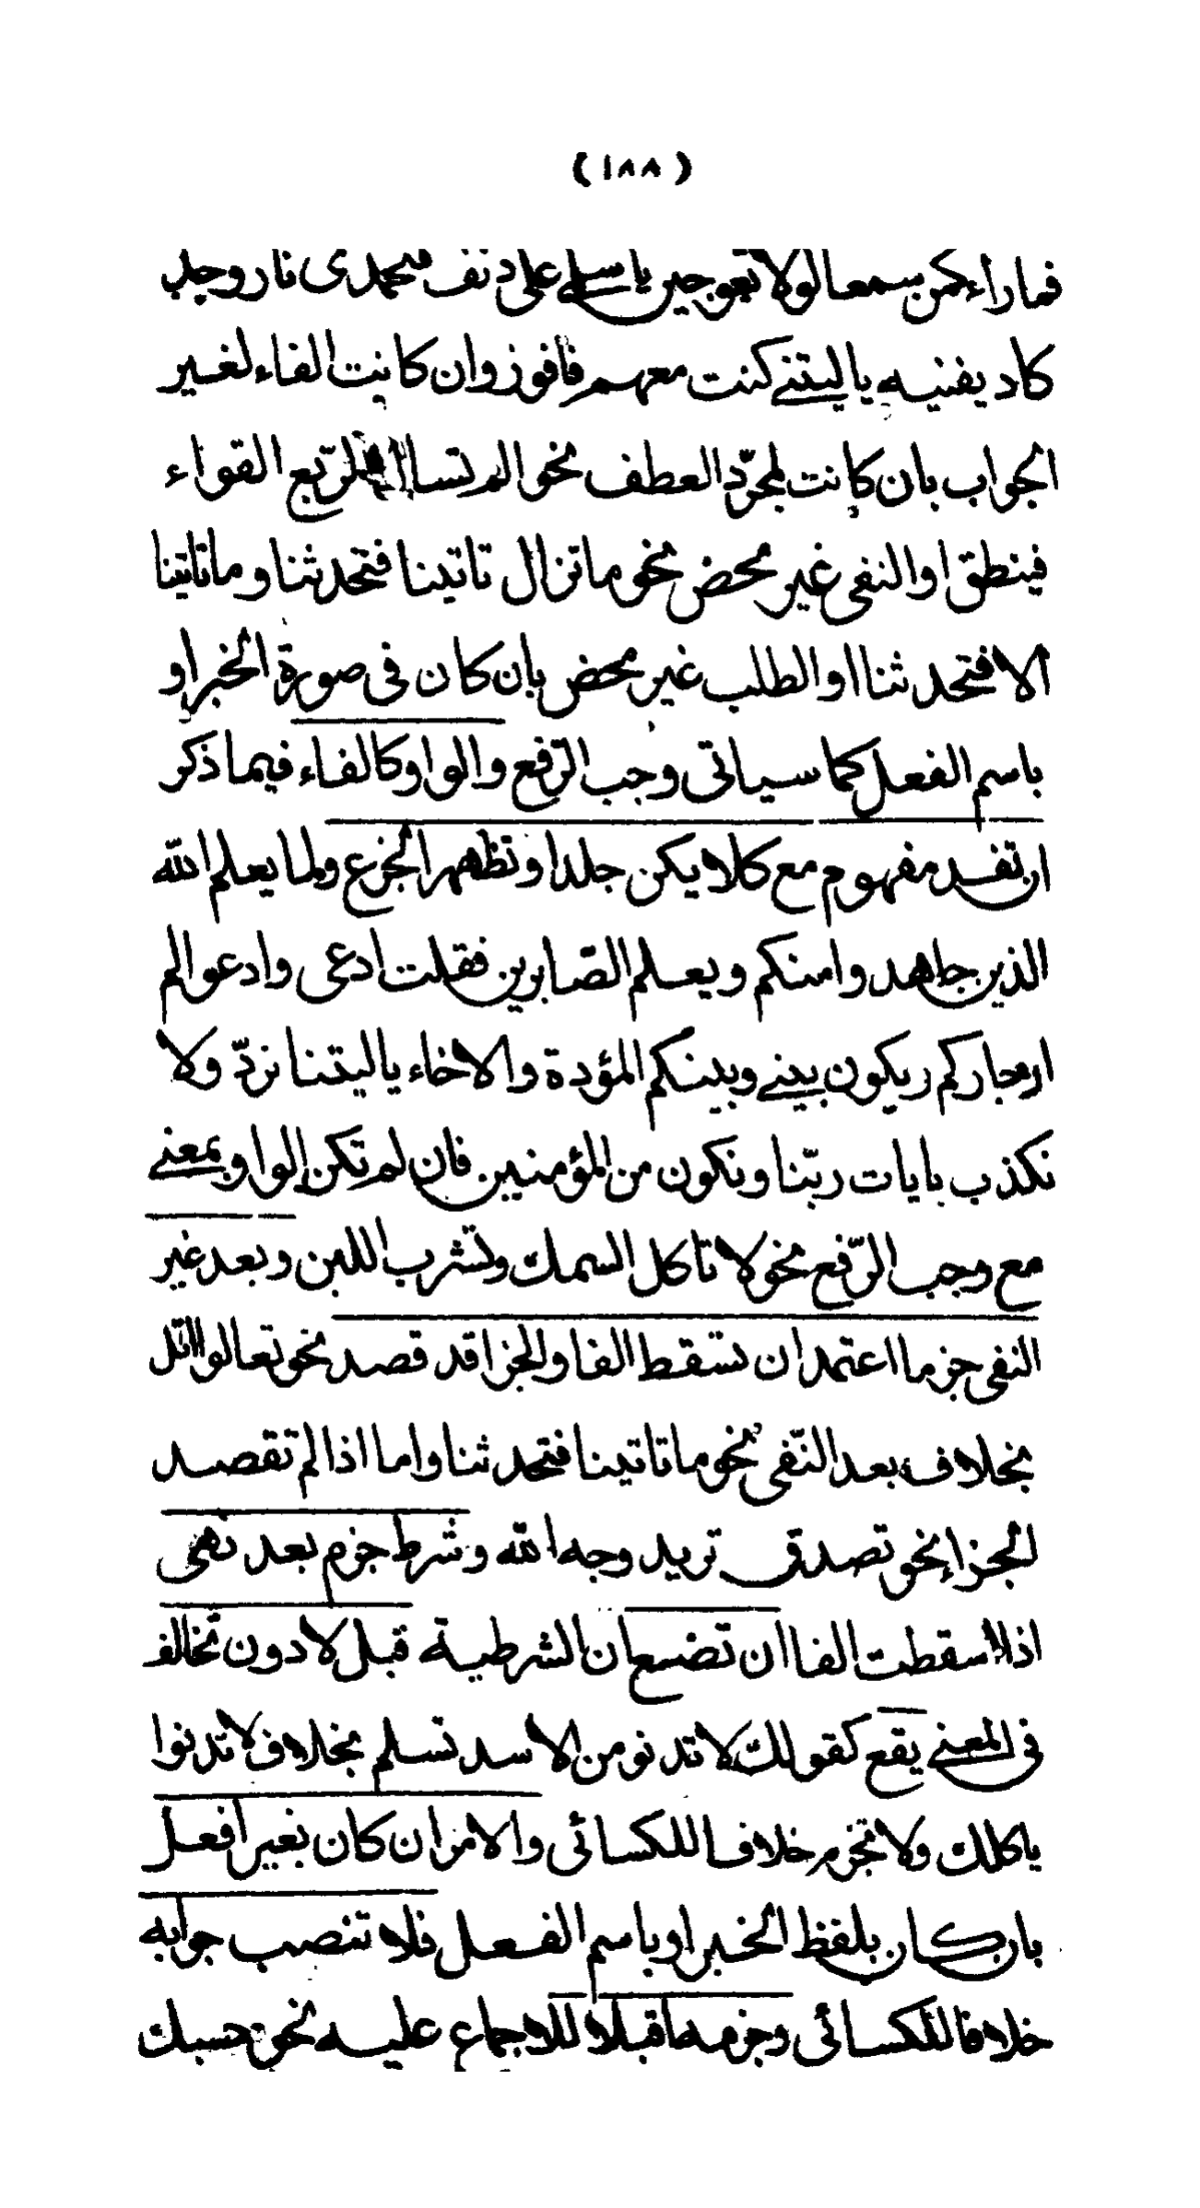 (١٨٨)
فما راء كمن سمعا لولا تعوجين يا سلمى على دنف فتخمدى نار وجد
كاد يفنيه ياليتنى كنت معهم فافوز وان كانت الفاء لغير
الجواب بان كانت لمجرّد العطف نحو الم تسال الرّبع القواء
فينطق او النفى غير محض نحو ما تزال تاتينا فتحدثنا وما تاتينا
الا فتحدثنا او الطلب غير محض بان كان فى صورة الخبر او
باسم الفعل كما سياتى وجب الرّفع والواو كالفاء فيما ذكر
ان تفد مفهوم مع كلا يكن جلدا وتظهر الجزع ولما يعلم الله
الذين جاهدوا منكم ويعلم الصّابرين فقلت ادعى وادعو الم
ار جاركم ويكون بينى وبينكم المؤدة والاخاء ياليتنا نردّ ولا
نكذب بايات ربّنا ونكون من المؤمنين فان لم تكن الواو بمعنى
مع وجب الرّفع نحو لا تاكل السمك وتشرب اللبن وبعد غير
النفى جزما اعتمد ان تسقط الفا والجزا قد قصد نحو تعالوا اتل
بخلاف بعد النّفى نحو ما تاتينا فتحدثنا واما اذا لم تقصد
الجزا نحو تصدق تريد وجه الله وشرط جزم بعد نهى
اذا اسقطت الفا ان تضع ان الشرطية قبل لا دون تخالف
فى المعنى يقع كقولك لا تدنو من الاسد تسلم بخلاف لا تدنوا
ياكلك ولا تجزم خلافا للكسائى والامر ان كان بغير افعل
بان كان بلفظ الخبر او باسم الفعل فلا تنصب جوابه
خلافا للكسائى وجزمه اقبلا للاجماع عليه نحو حسبك